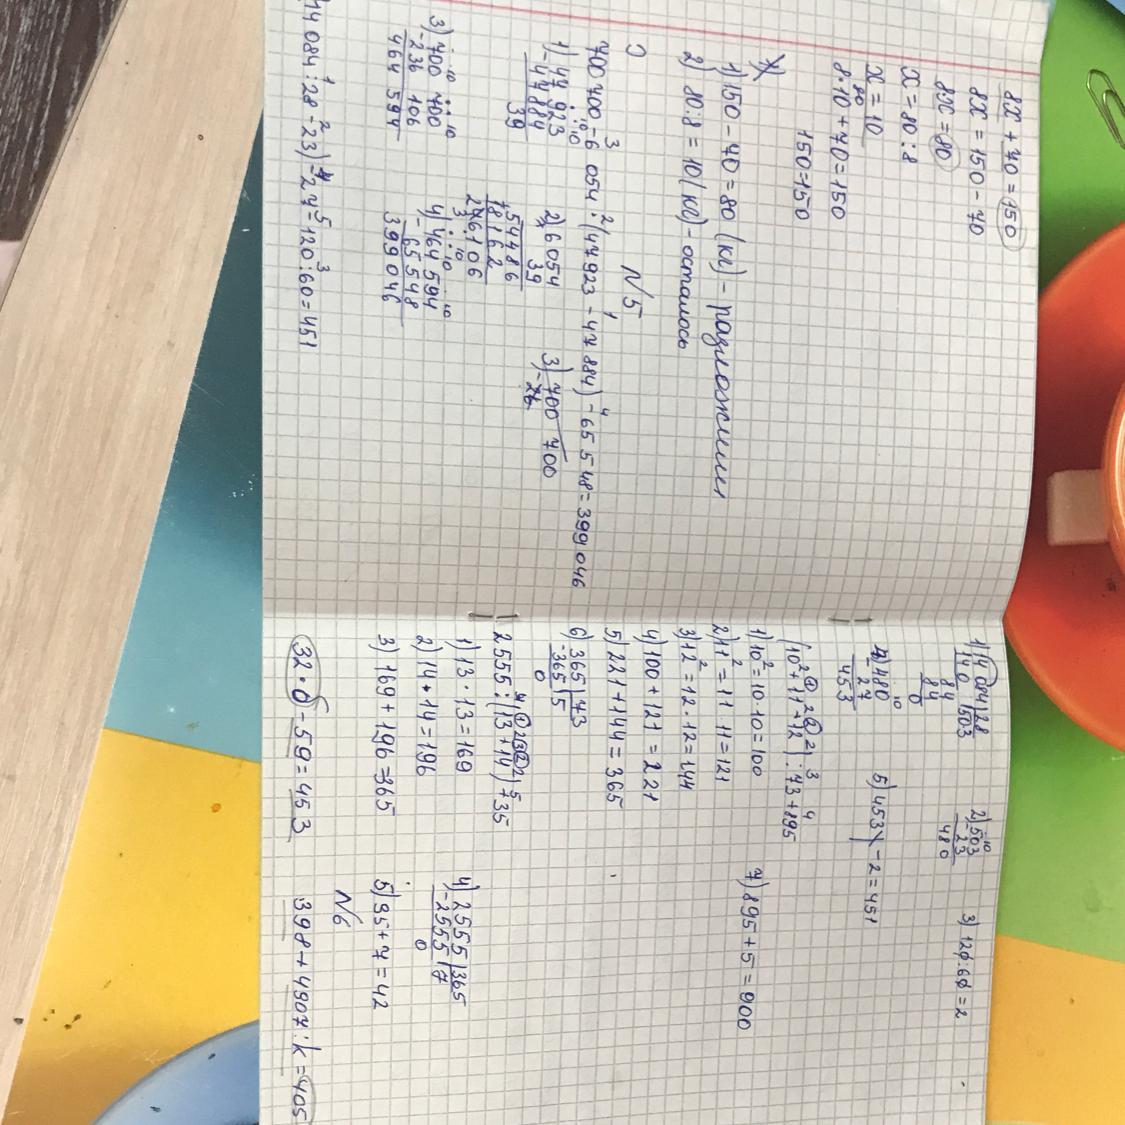 8x + 70 = 150
8x = 150 - 70
8x = 80
x = 80 : 8
x = 10
8 · 10 + 70 = 150
150 = 150
1) 150 - 70 = 80 (кг) - разложили
2) 80 : 8 = 10 (кг) - осталось
N 5
700 700 - 6 054 · (47 923 - 47 884) - 65 548 = 399 046
1) 47 923
- 47 884
39
2) 6054
39
54486
18162
236106
3) 700 700
3) 700 700
- 236 106
464 594
4) 464 594
- 65 548
399 046
14 084 : 28 - 23) - 27 - 120 : 60 = 451
1) 14 084 | 28
140 | 503
84
84
0
2) 503
- 23
480
3) 120 : 60 = 2
4) 480
- 27
453
5) 453 - 2 = 451
(10² + 11² + 12²) : 73 + 895
1) 10² = 10 · 10 = 100
2) 11² = 11 · 11 = 121
3) 12² = 12 · 12 = 144
4) 100 + 121 = 221
5) 221 + 144 = 365
6) 365 | 73
- 365 | 5
0
7) 895 + 5 = 900
2555 : (13² + 14²) + 35
1) 13 · 13 = 169
2) 14 · 14 = 196
3) 169 + 196 = 365
4) 2555 | 365
- 2555 | 7
0
5) 35 + 7 = 42
N 6
32 · b - 59 = 453
398 + 4907 : k = 405